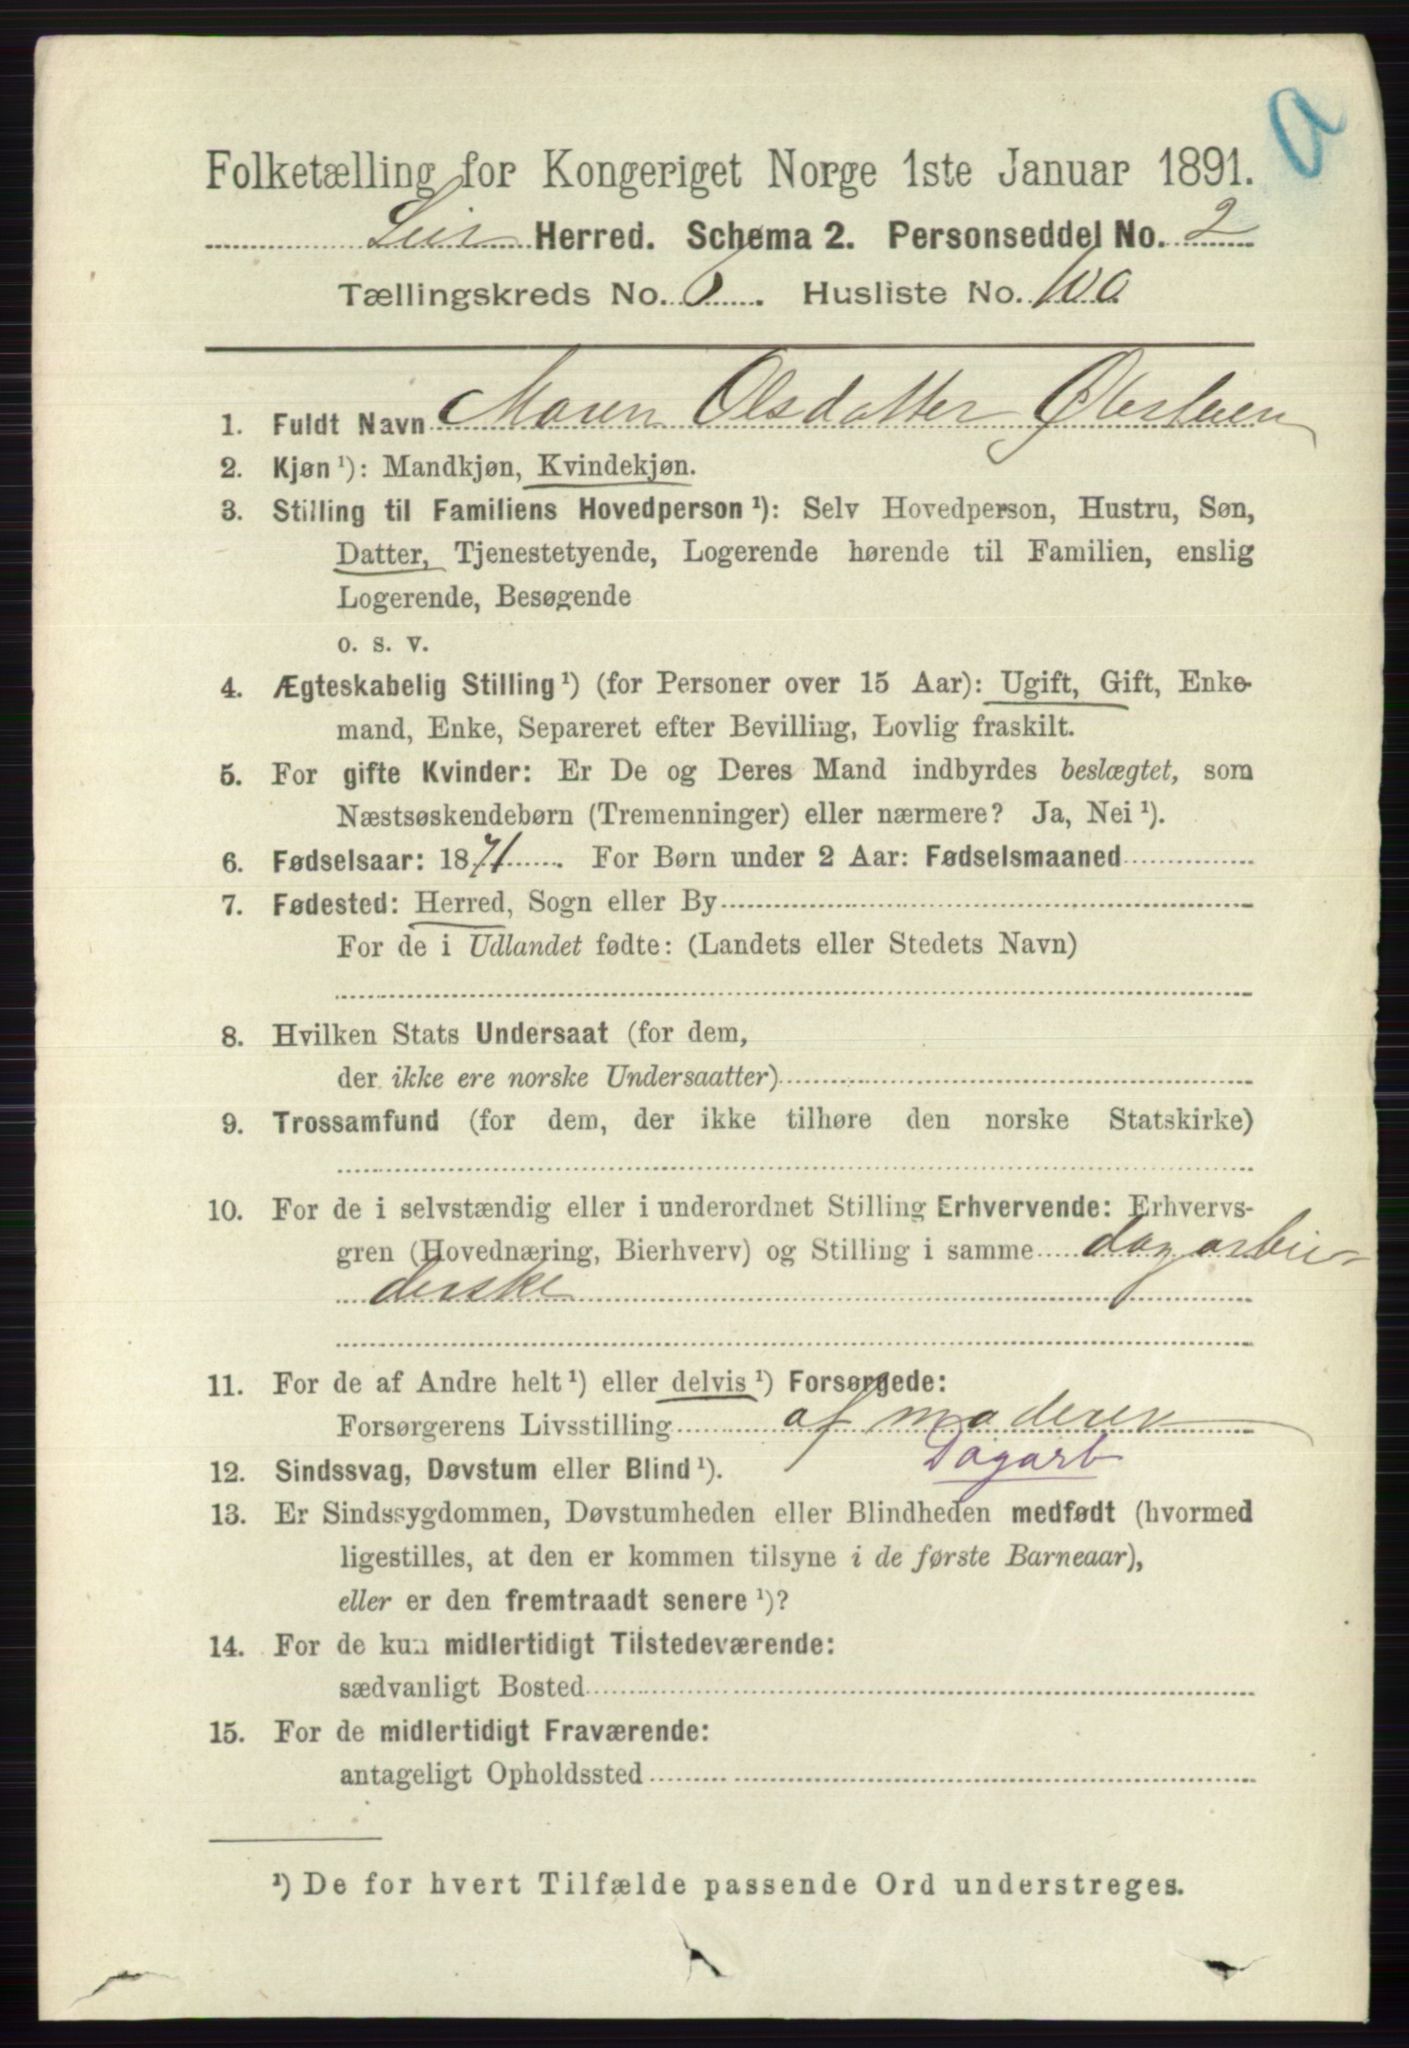 a
Folketælling for Kongeriget Norge 1ste Januar 1891.
Lier Herred. Schema 2. Personseddel No. 2
Tællingskreds No. 6. Husliste No. 100
1. Fuldt Navn Maren Olsdatter
2. Kjøn ¹): Mandkjøn, Kvindekjøn.
3. Stilling til Familiens Hovedperson ¹): Selv Hovedperson, Hustru, Søn,
Datter, Tjenestetyende, Logerende hørende til Familien, enslig
Logerende, Besøgende
o. s. v.
4. Ægteskabelig Stilling ¹) (for Personer over 15 Aar): Ugift, Gift, Enke-
mand, Enke, Separeret efter Bevilling, Lovlig fraskilt.
5. For gifte Kvinder: Er De og Deres Mand indbyrdes beslægtet, som
Næstsøskendebørn (Tremenninger) eller nærmere? Ja, Nei ¹).
6. Fødselsaar: 1871. For Børn under 2 Aar: Fødselsmaaned
7. Fødested: Herred, Sogn eller By
For de i Udlandet fødte: (Landets eller Stedets Navn)
8. Hvilken Stats Undersaat (for dem,
der ikke ere norske Undersaatter)
9. Trossamfund (for dem, der ikke tilhøre den norske Statskirke)
10. For de i selvstændig eller i underordnet Stilling Erhvervende: Erhvervs-
gren (Hovednæring, Bierhverv) og Stilling i samme dagarbei-
derske
11. For de af Andre helt ¹) eller delvis ¹) Forsørgede:
Forsørgerens Livsstilling af moderen
Dagarb
12. Sindssvag, Døvstum eller Blind ¹).
13. Er Sindssygdommen, Døvstumheden eller Blindheden medfødt (hvormed
ligestilles, at den er kommen tilsyne i de første Barneaar),
eller er den fremtraadt senere ¹)?
14. For de kun midlertidigt Tilstedeværende:
sædvanligt Bosted
15. For de midlertidigt Fraværende:
antageligt Opholdssted
¹) De for hvert Tilfælde passende Ord understreges.